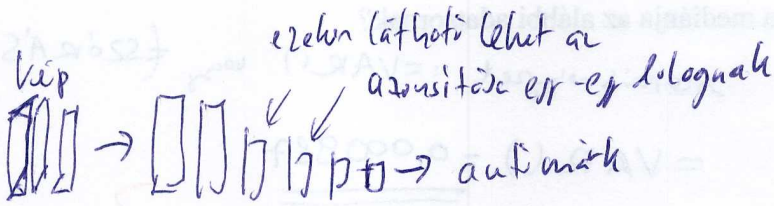 ezeken látható lehet az
azonosítása egy-egy dolognak
kép
→ → autómárk